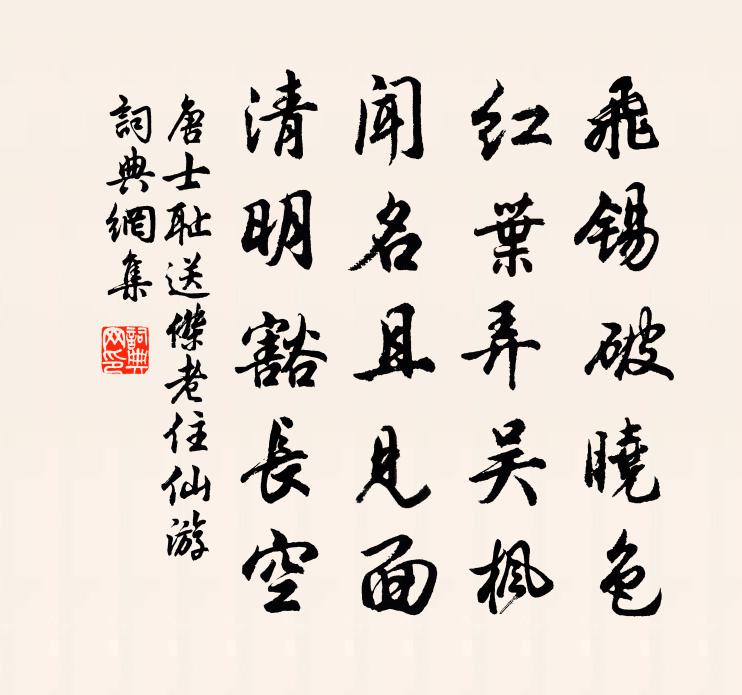 飛錫破曉色
紅葉弄吴楓
聞名且見面
清明豁長空
唐士耻送傑老住仙游
詞典網集
詞典网印